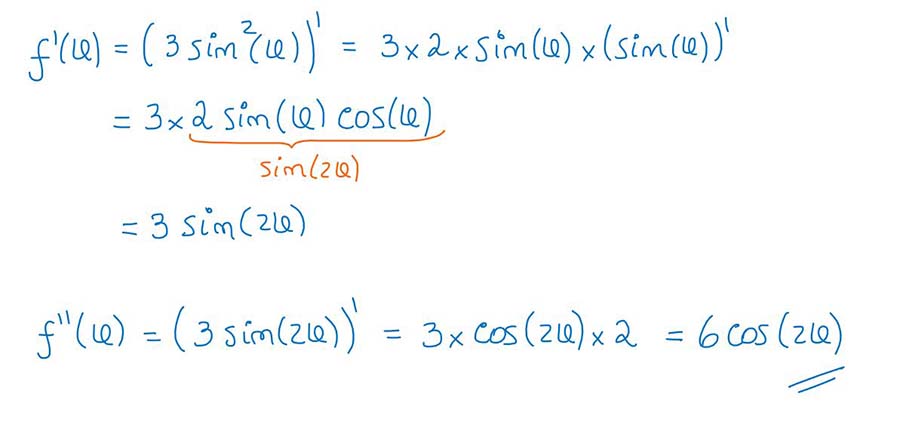 f'(φ) = (3 sin²(φ))' = 3 × 2 × sin(φ) × (sin(φ))'
= 3 × 2 sin(φ) cos(φ)
sin(2φ)
= 3 sin(2φ)
f''(φ) = (3 sin(2φ))' = 3 × cos(2φ) × 2 = 6 cos(2φ)